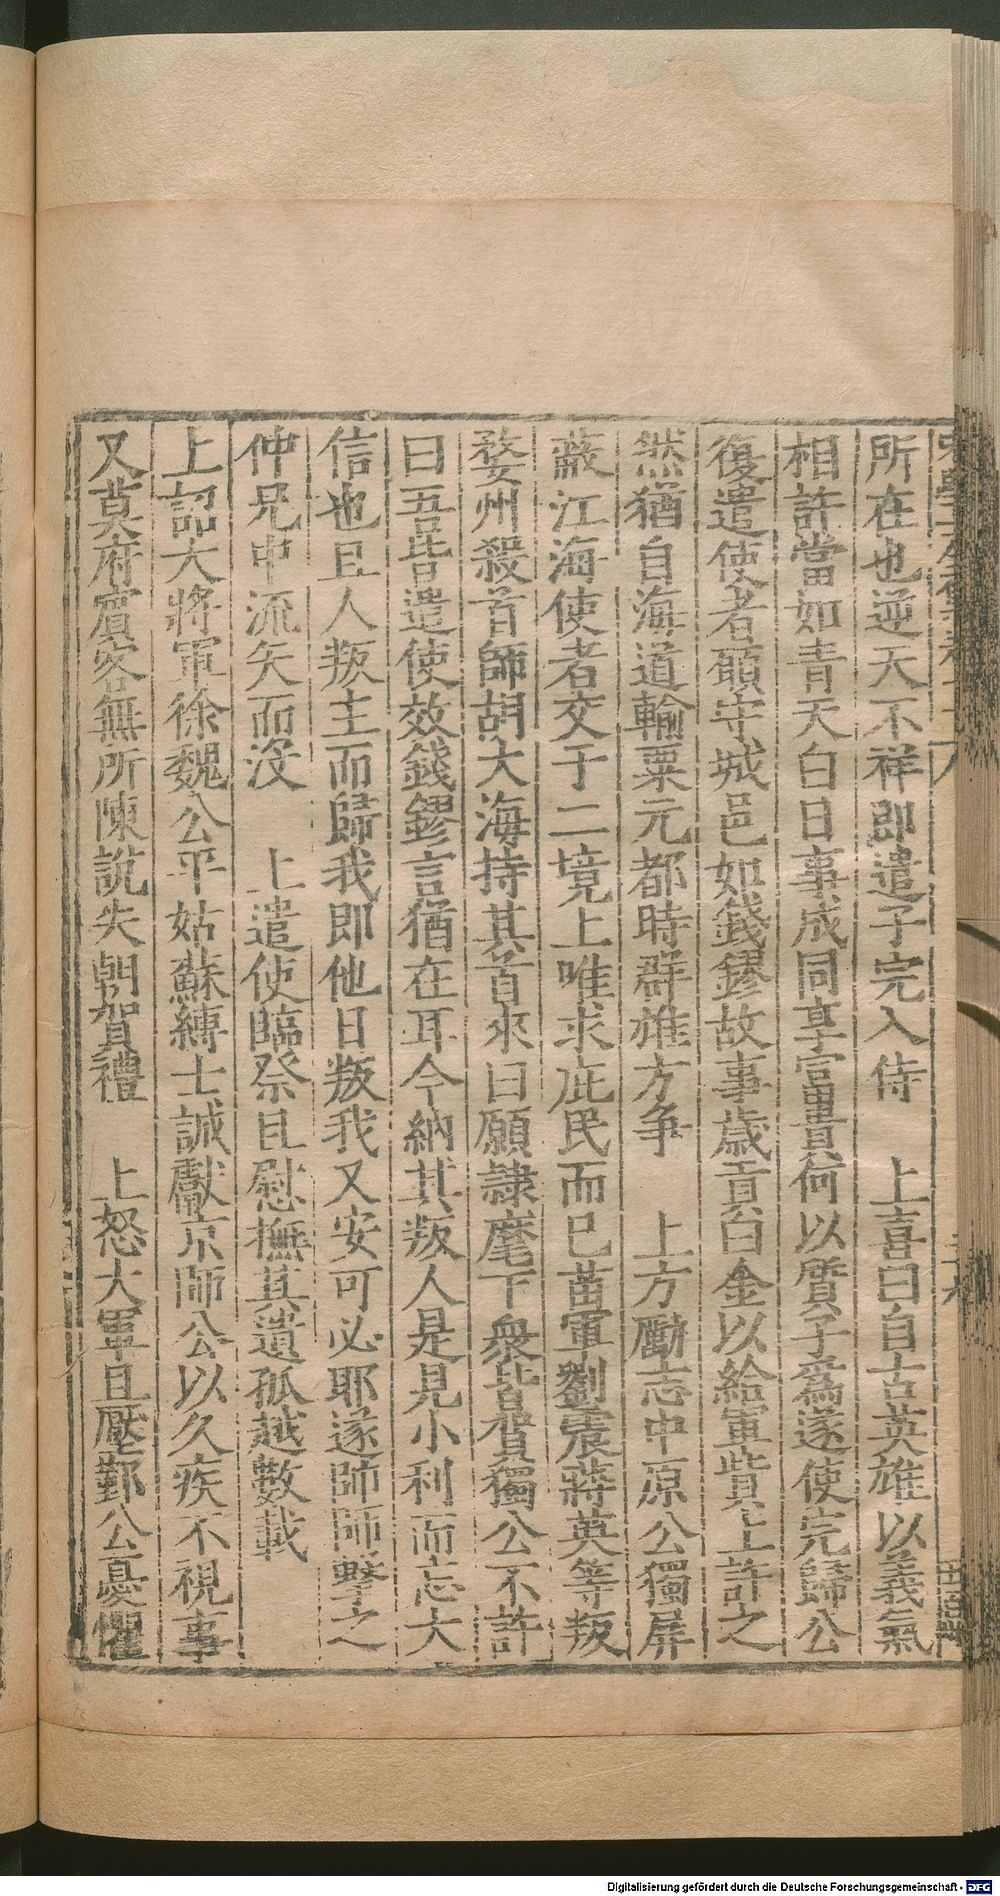 所在也逆天不祥即遣子完入侍　上喜曰自古英雄以義氣
相許當如青天白日事成同享富貴何以質子爲遂使完歸公
復遣使者願守城邑如錢鏐故事歲貢白金以給軍貲上許之
然猶自海道輸粟元都時群雄方争　上方勵志中原公獨屏
蔽江海使者交于二境上唯求庇民而已苗軍劉震蔣英等叛
婺州殺首帥胡大海持其首來曰願隷麾下衆皆賀獨公不許
曰吾昔遣使效錢鏐言猶在耳今納其叛人是見小利而忘大
信也且人叛主而歸我即他日叛我又安可必耶遂師師擊之
仲兄中流矢而没　上遣使臨祭且慰撫其遺孤越數載
上詔大將軍徐魏公平姑蘇縛士誠獻京師公以久疾不視事
又莫府賓客無所陳說失朝賀禮　上怒大軍且壓鄞公憂懼
Digitalisierung gefördert durch die Deutsche Forschungsgemeinschaft - DFG